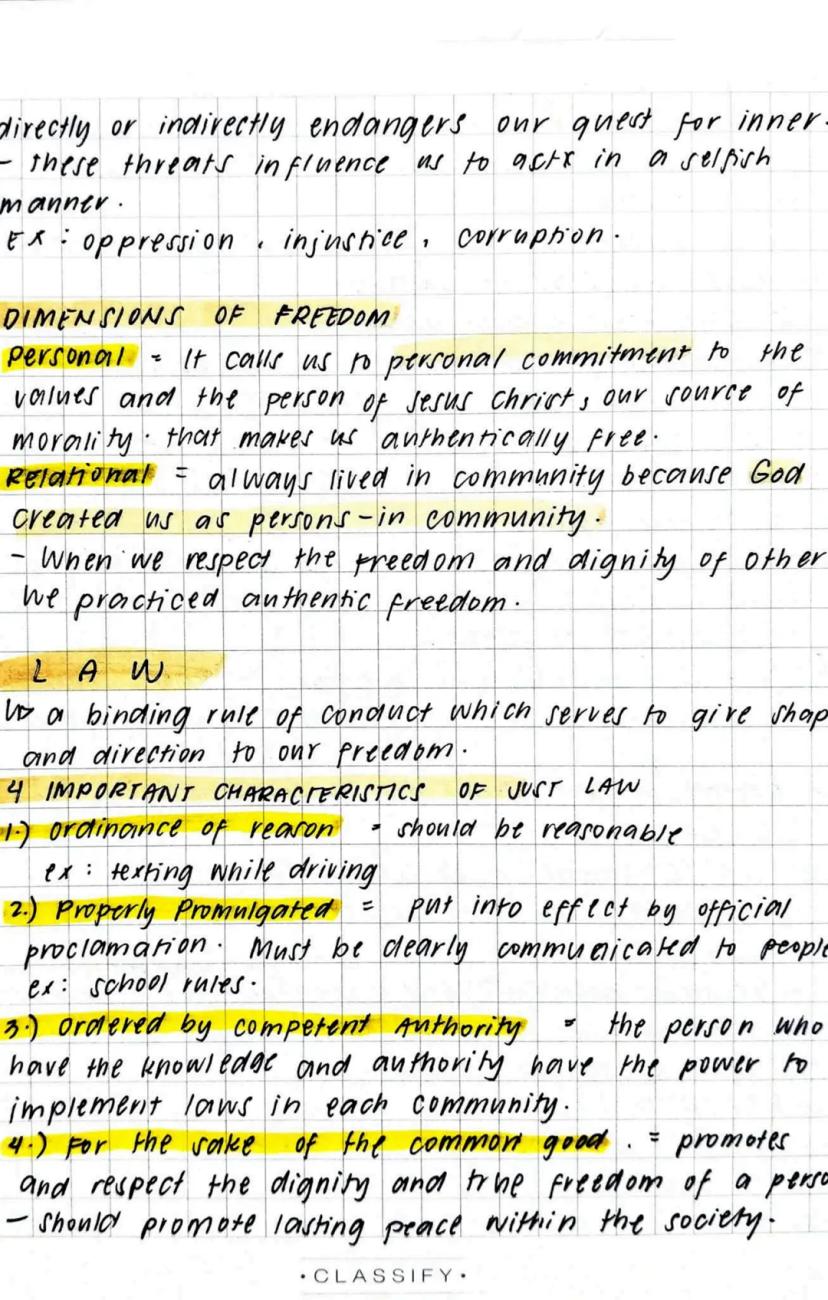 directly or indirectly endangers our quest for inner-
- these threats influence us to act in a selfish
manner.
EX : oppression , injustice , corruption .
DIMENSIONS OF FREEDOM
Personal = It calls us to personal commitment to the
values and the person of Jesus Christ, our source of
morality. that makes us authentically free.
Relational = always lived in community because God
created us as persons-in community.
- When we respect the freedom and dignity of other
we practiced authentic freedom.
LAW
↳ a binding rule of conduct which serves to give shap
and direction to our freedom.
4 IMPORTANT CHARACTERISTICS OF JUST LAW
1.) Ordinance of reason = should be reasonable
ex : texting while driving
2.) Properly Promulgated = put into effect by official
proclamation. Must be clearly communicated to people
ex: school rules.
3.) Ordered by competent Authority = the person who
have the knowledge and authority have the power to
implement laws in each community.
4.) For the sake of the common good . = promotes
and respect the dignity and true freedom of a perso
- should promote lasting peace within the society.
•CLASSIFY•